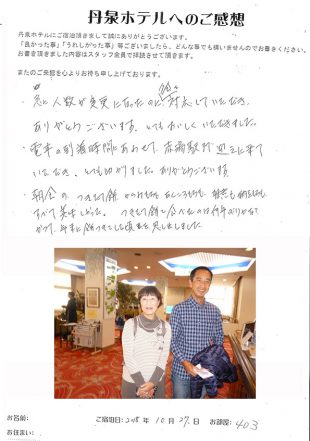 丹泉ホテルへのご感想
丹泉ホテルにご宿泊頂きまして誠にありがとうございます。
「良かった事」「うれしかった事」等ございましたら、どんな事でも構いませんのでお書きください。
お書き頂きました内容はスタッフ全員で拝読させて頂きます。
またのご来館を心よりお待ち申し上げております。
・急に人数が変更になったのに 対応していただき、
ありがとうございます。とてもおいしくいただきました。
・電車の到着時間にあわせて、赤湯駅 迎えに来て
いただき、とても助かりました。ありがとうございます
・朝食の つきたて餅
すべて美味しかった。つきたて餅を食べたのは何年ぶりかな
年末に餅つきをした頃を思い出しました
お名前:
ご宿泊日: 2018年 10月 27日 お部屋: 403
お住まい: